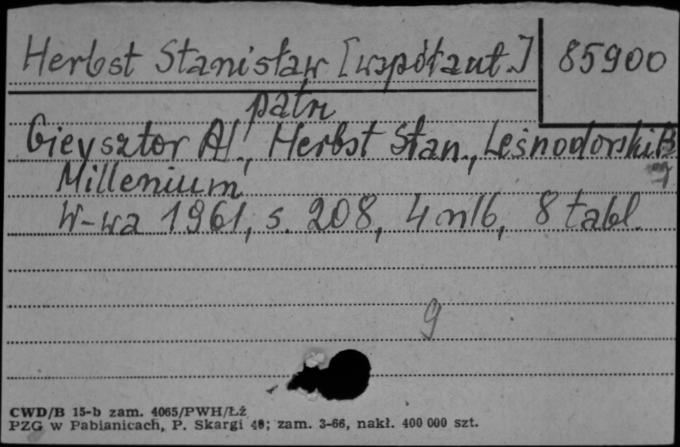 Herbst Stanisław [współaut.] 85900
patrz
Gieysztor Al., Herbst Stan., Leśnodorski B.
Millenium
W-wa 1961, s. 208, 4 nlb, 8 tabl.
9
CWD/B 15-b zam. 4065/PWH/ŁŻ
PZG w Pabianicach, P. Skargi 40; zam. 3-66, nakł. 400 000 szt.